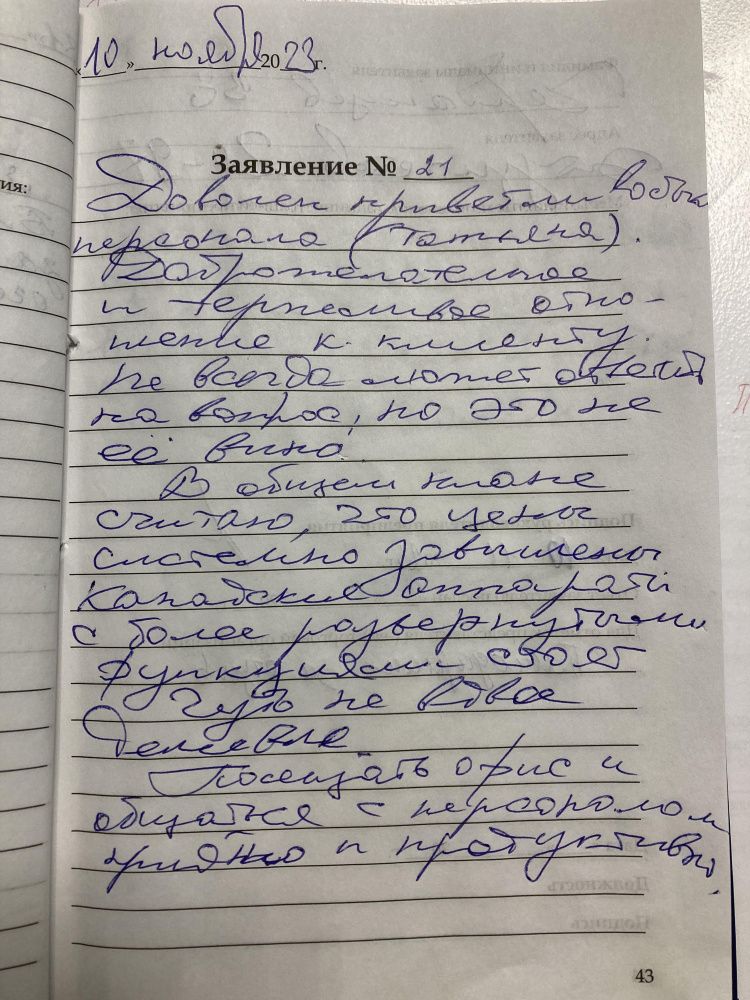 «10» ноября 2023 г.
ия:
Заявление № 21
Доволен приветливостью
персонала (Татьяна).
Доброжелательное
и терпеливое отно-
шение к клиенту.
Не всегда может ответить
на вопрос, но это не
её вина.
В общем плане
считаю, что цены
системно завышены
Канадские аппараты
с более развернутыми
функциями стоят
Чуть не вдвое
дешевле
Посещать офис и
общаться с персоналом
приятно и продуктивно.
43